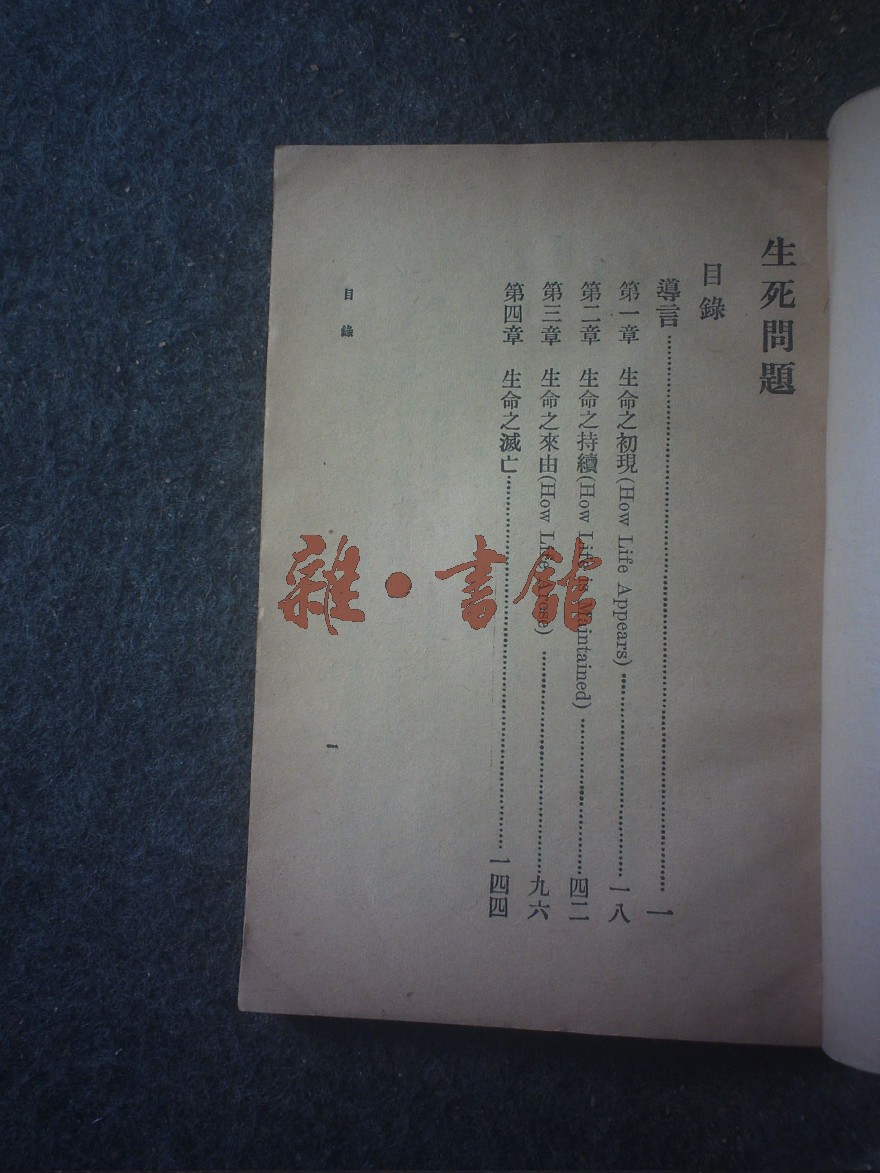 生死問題
目錄
導言……一
第一章 生命之初現(How Life Appears)……一八
第二章 生命之持續(How Life is Maintained)……四二
第三章 生命之來由(How Life Arose)……九六
第四章 生命之滅亡……一四四
目錄
一
雜·書館